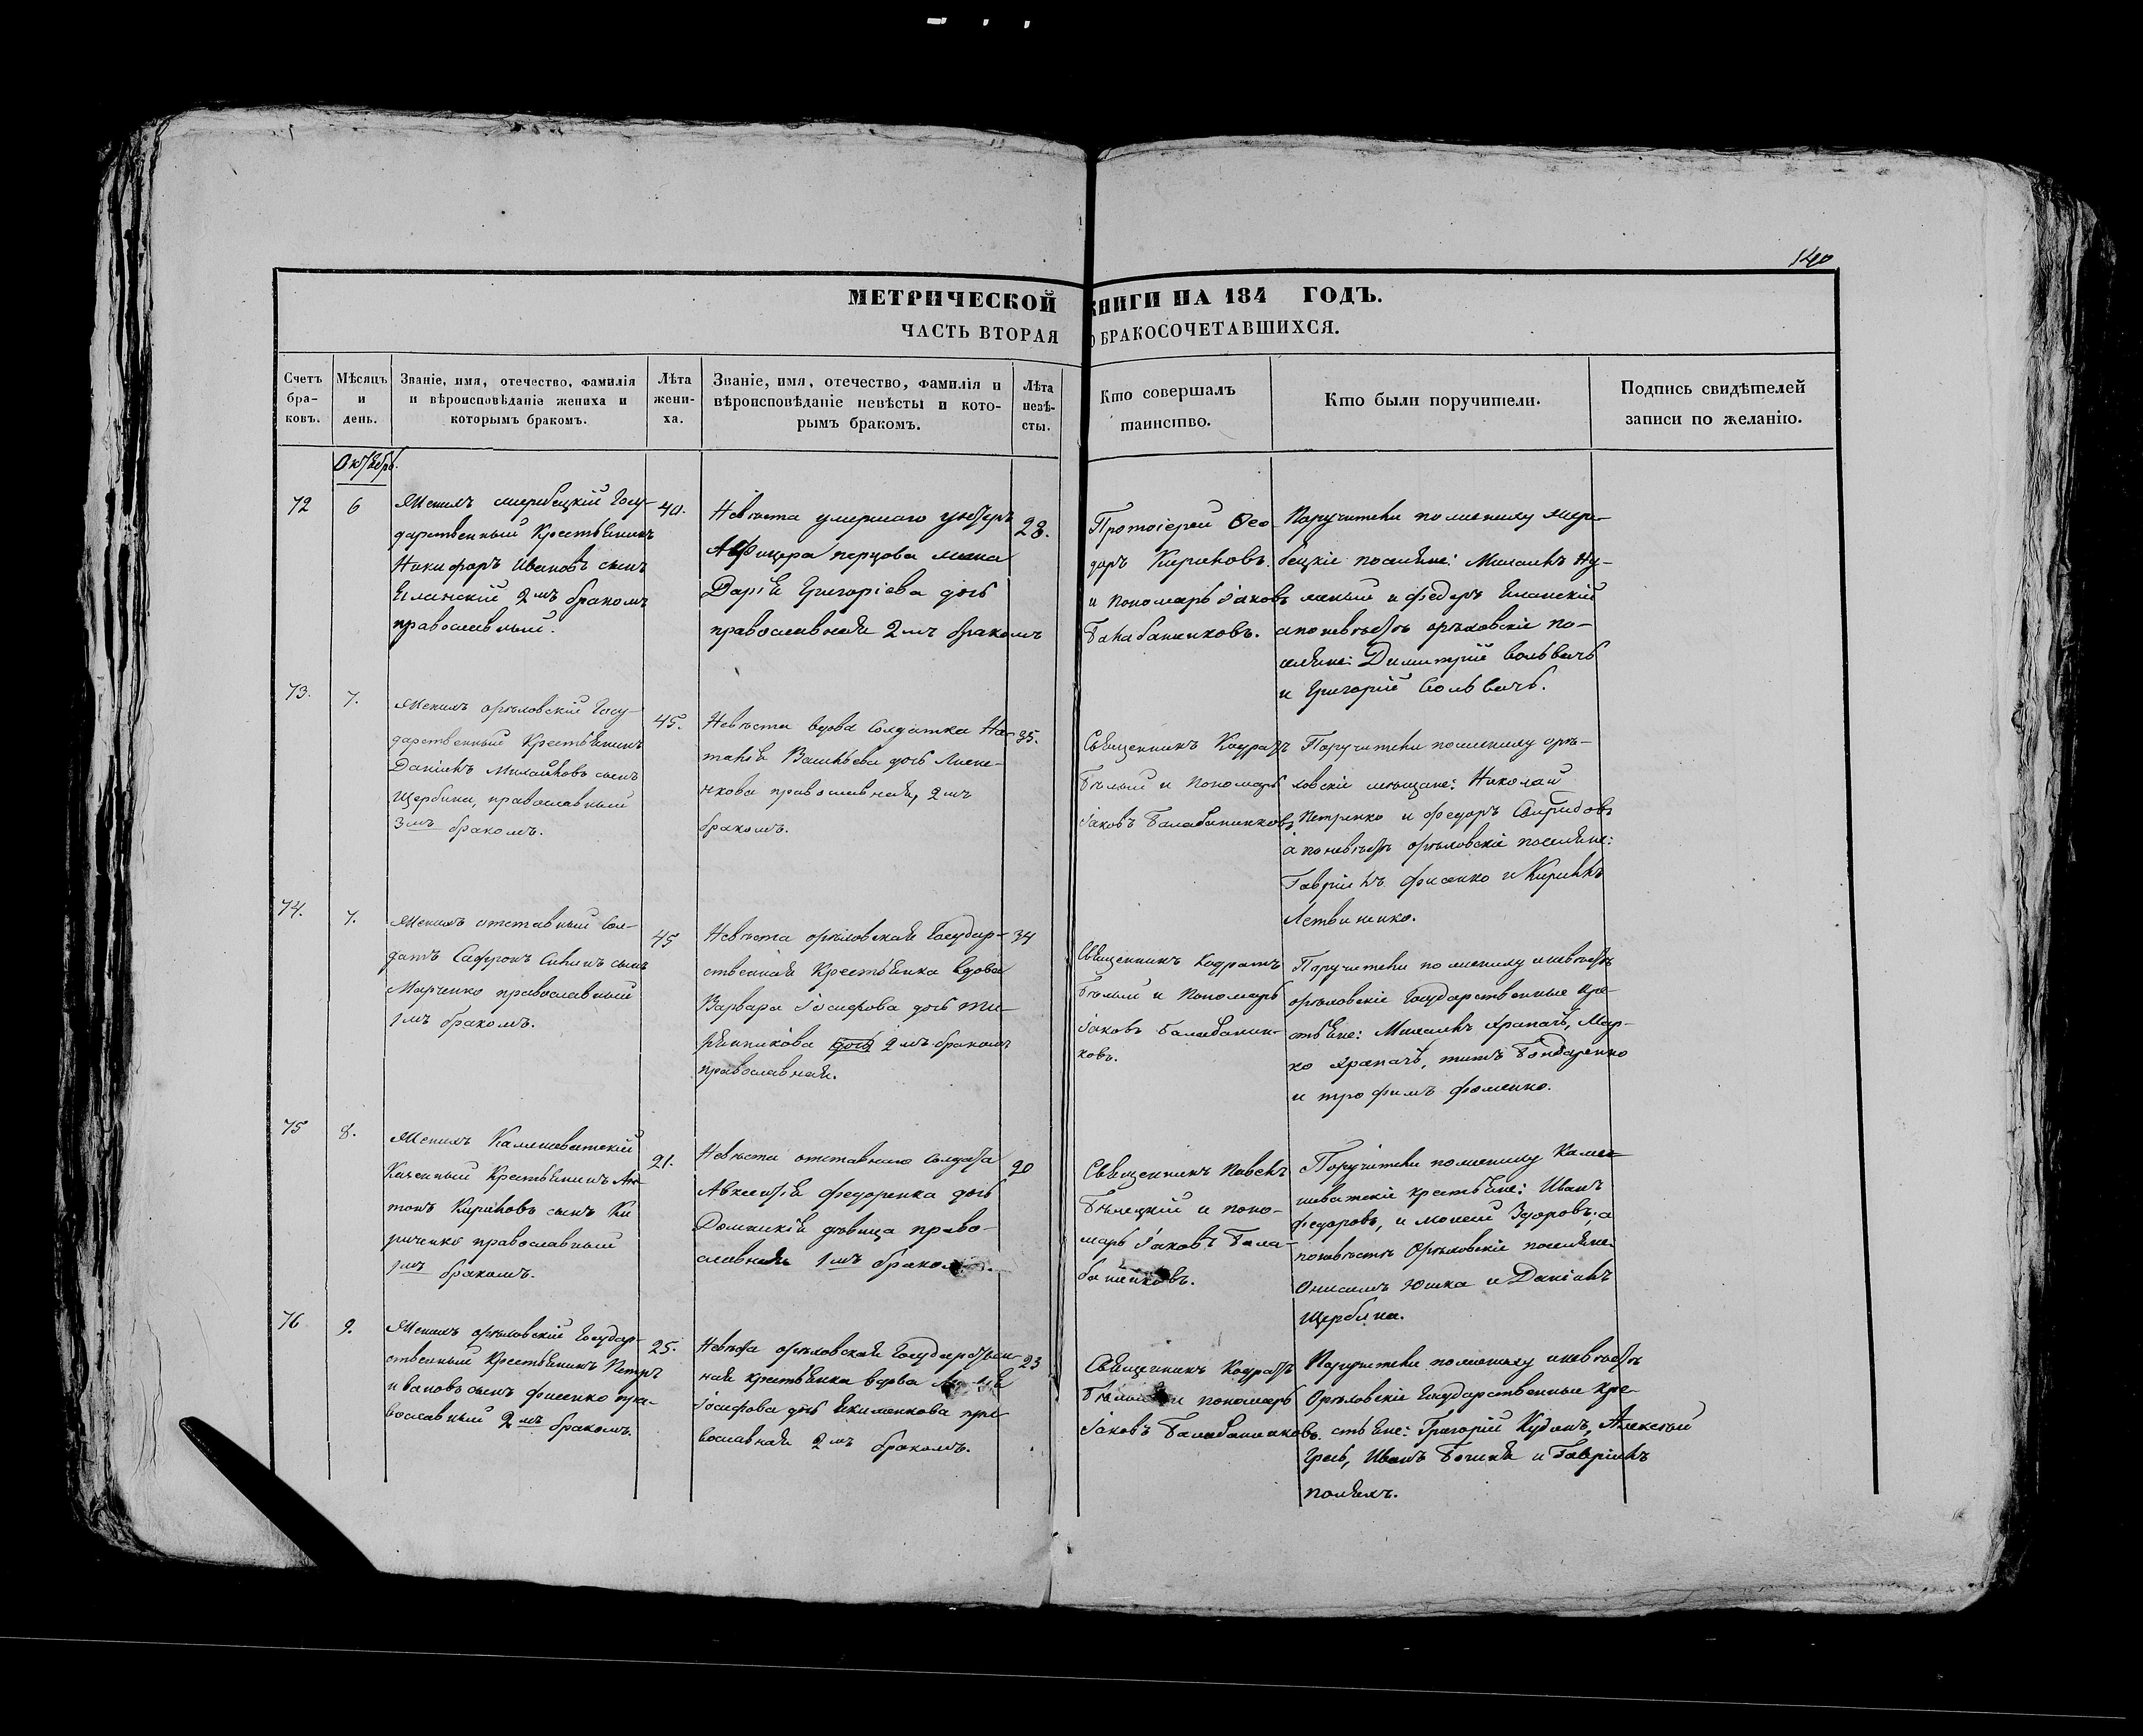 140
МЕТРИЧЕСКОЙ КНИГИ НА 184 ГОДЪ.
ЧАСТЬ ВТОРАЯ О БРАКОСОЧЕТАВШИХСЯ.
Счетъ бра- ковъ.
Мѣсяцъ и день.
Званіе, имя, отечество, фамилія и вѣроисповѣданіе жениха и которымъ бракомъ.
Лѣта жени- ха.
Званіе, имя, отечество, фамилія и вѣроисповѣданіе невѣсты и кото- рымъ бракомъ.
Лѣта невѣ- сты.
Кто совершалъ таинство.
Кто были поручители.
Подпись свидѣтелей записи по желанію.
72
6
Государственный Крестьянинъ
Никифоръ Ивановъ сынъ
2мъ бракомъ
православный.
40.
Невѣста умершаго
жена
Дарія Григоріева дочь
православная 2мъ бракомъ
28.
Протоіерей Ѳео-
доръ Кириловъ.
и Пономарь Іаковъ
Балабанниковъ.
Поручители по жениху
поселяне: Михаилъ
и Федоръ
а по невѣстѣ орѣховскіе по-
селяне: Димитрій
и Григорій
73.
7.
Женихъ орѣховскій Госу-
дарственный Крестьянинъ
Даніилъ Михайловъ сынъ
Щербина, православный
3мъ бракомъ.
45.
Невѣста вдова Солдатка На-
талія Васильева дочь
православная, 2мъ
бракомъ.
35.
Священникъ Кодратъ
Бѣлый и Пономарь
Іаковъ Балабанниковъ
Поручители по жениху орѣ-
ховскіе мѣщане: Николай
Петренко и Федоръ Свиридовъ
а по невѣстѣ орѣховскіе поселяне:
Гавріилъ Фисенко и Кирилъ
Летвиненко.
74.
7.
Женихъ отставный сол-
датъ Сафронъ сынъ
Марченко православный
1мъ бракомъ.
45
Невѣста орѣховская Государ-
ственная Крестьянка вдова
Варвара Іосифова дочь
2мъ бракомъ
православная.
34
Священникъ Кодратъ
Бѣлый и Пономарь
Іаковъ Балабанни-
ковъ.
Поручители по жениху и невѣстѣ
орѣховскіе Государственные кре-
стьяне: Михаилъ Храпачъ, Мар-
ко Храпачъ, Титъ Бондаренко
и Трофимъ Фоменко.
75
8.
Женихъ Камышеватскій
Казенный Крестьянинъ Ан-
тонъ Кириловъ сынъ Ки
риченко православный
1мъ бракомъ.
21.
Невѣста отставнаго солдата
Авксентія Федоренка дочь
Домникія дѣвица право-
славная 1мъ
20
Священникъ Павелъ
и поно-
марь Іаковъ Бала-
банниковъ.
Поручители по жениху
крестьяне: Иванъ
Федоровъ, и Моисей Здоровъ; а
по невѣстѣ Орѣховскіе поселяне
Онисимъ Юшка и Даніилъ
Щербина.
76
9.
Женихъ орѣховскій Государ-
ственный Крестьянинъ Петръ
Ивановъ сынъ Фисенко пра-
вославный 2мъ бракомъ.
25.
Невѣста орѣховская
крестьянка вдова
Іосифова дочь Екименкова пра
вославная 2мъ бракомъ.
23
Священникъ Кодратъ
и пономарь
Іаковъ Балабанниковъ.
Поручители по жениху и невѣстѣ
Орѣховскіе Государственные Кре-
стьяне: Григорій Алексѣй
Иванъ и Гавріилъ